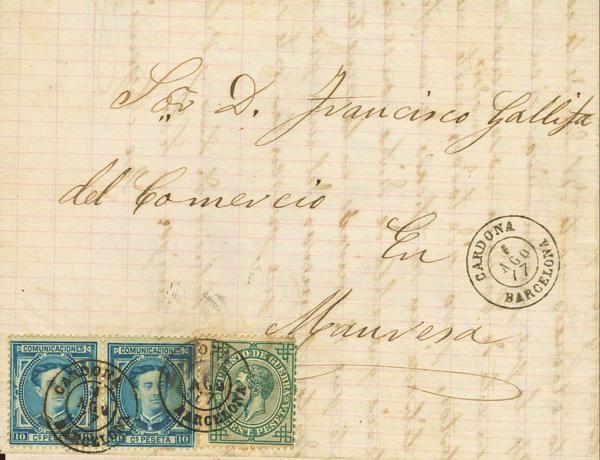 Sor D. Francisco Gallifa
del Comercio
En
Manresa
CARDONA
6
AGO
77
BARCELONA
COMUNICACIONES
10 Cs PESETA
COMUNICACIONES
10 Cs PESETA 10
CARDONA
AGO
BARCELONA
AGO
77
BARCELONA
DE GUERRA
CENT. PESETA